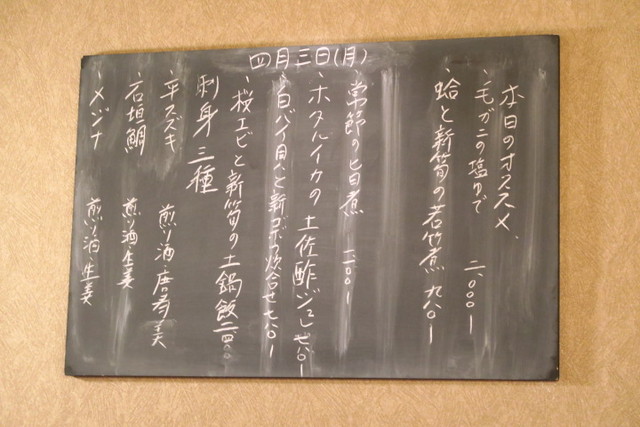 四月三日(月)
本日のオススメ、
、毛ガニの塩ゆで 二、〇〇〇ー
、蛤と新筍の若竹煮 九八〇ー
、常節の旨煮 一、〇〇〇ー
、ホタルイカの土佐酢ジュレ 七八〇ー
、白バイ貝と新ゴボウ炊合せ 七八〇ー
、桜エビと新筍の土鍋飯 二四〇〇
刺身三種
、平スズキ 煎り酒・唐寿美
、石垣鯛 煎り酒・生姜
、メジナ 煎り酒・生姜